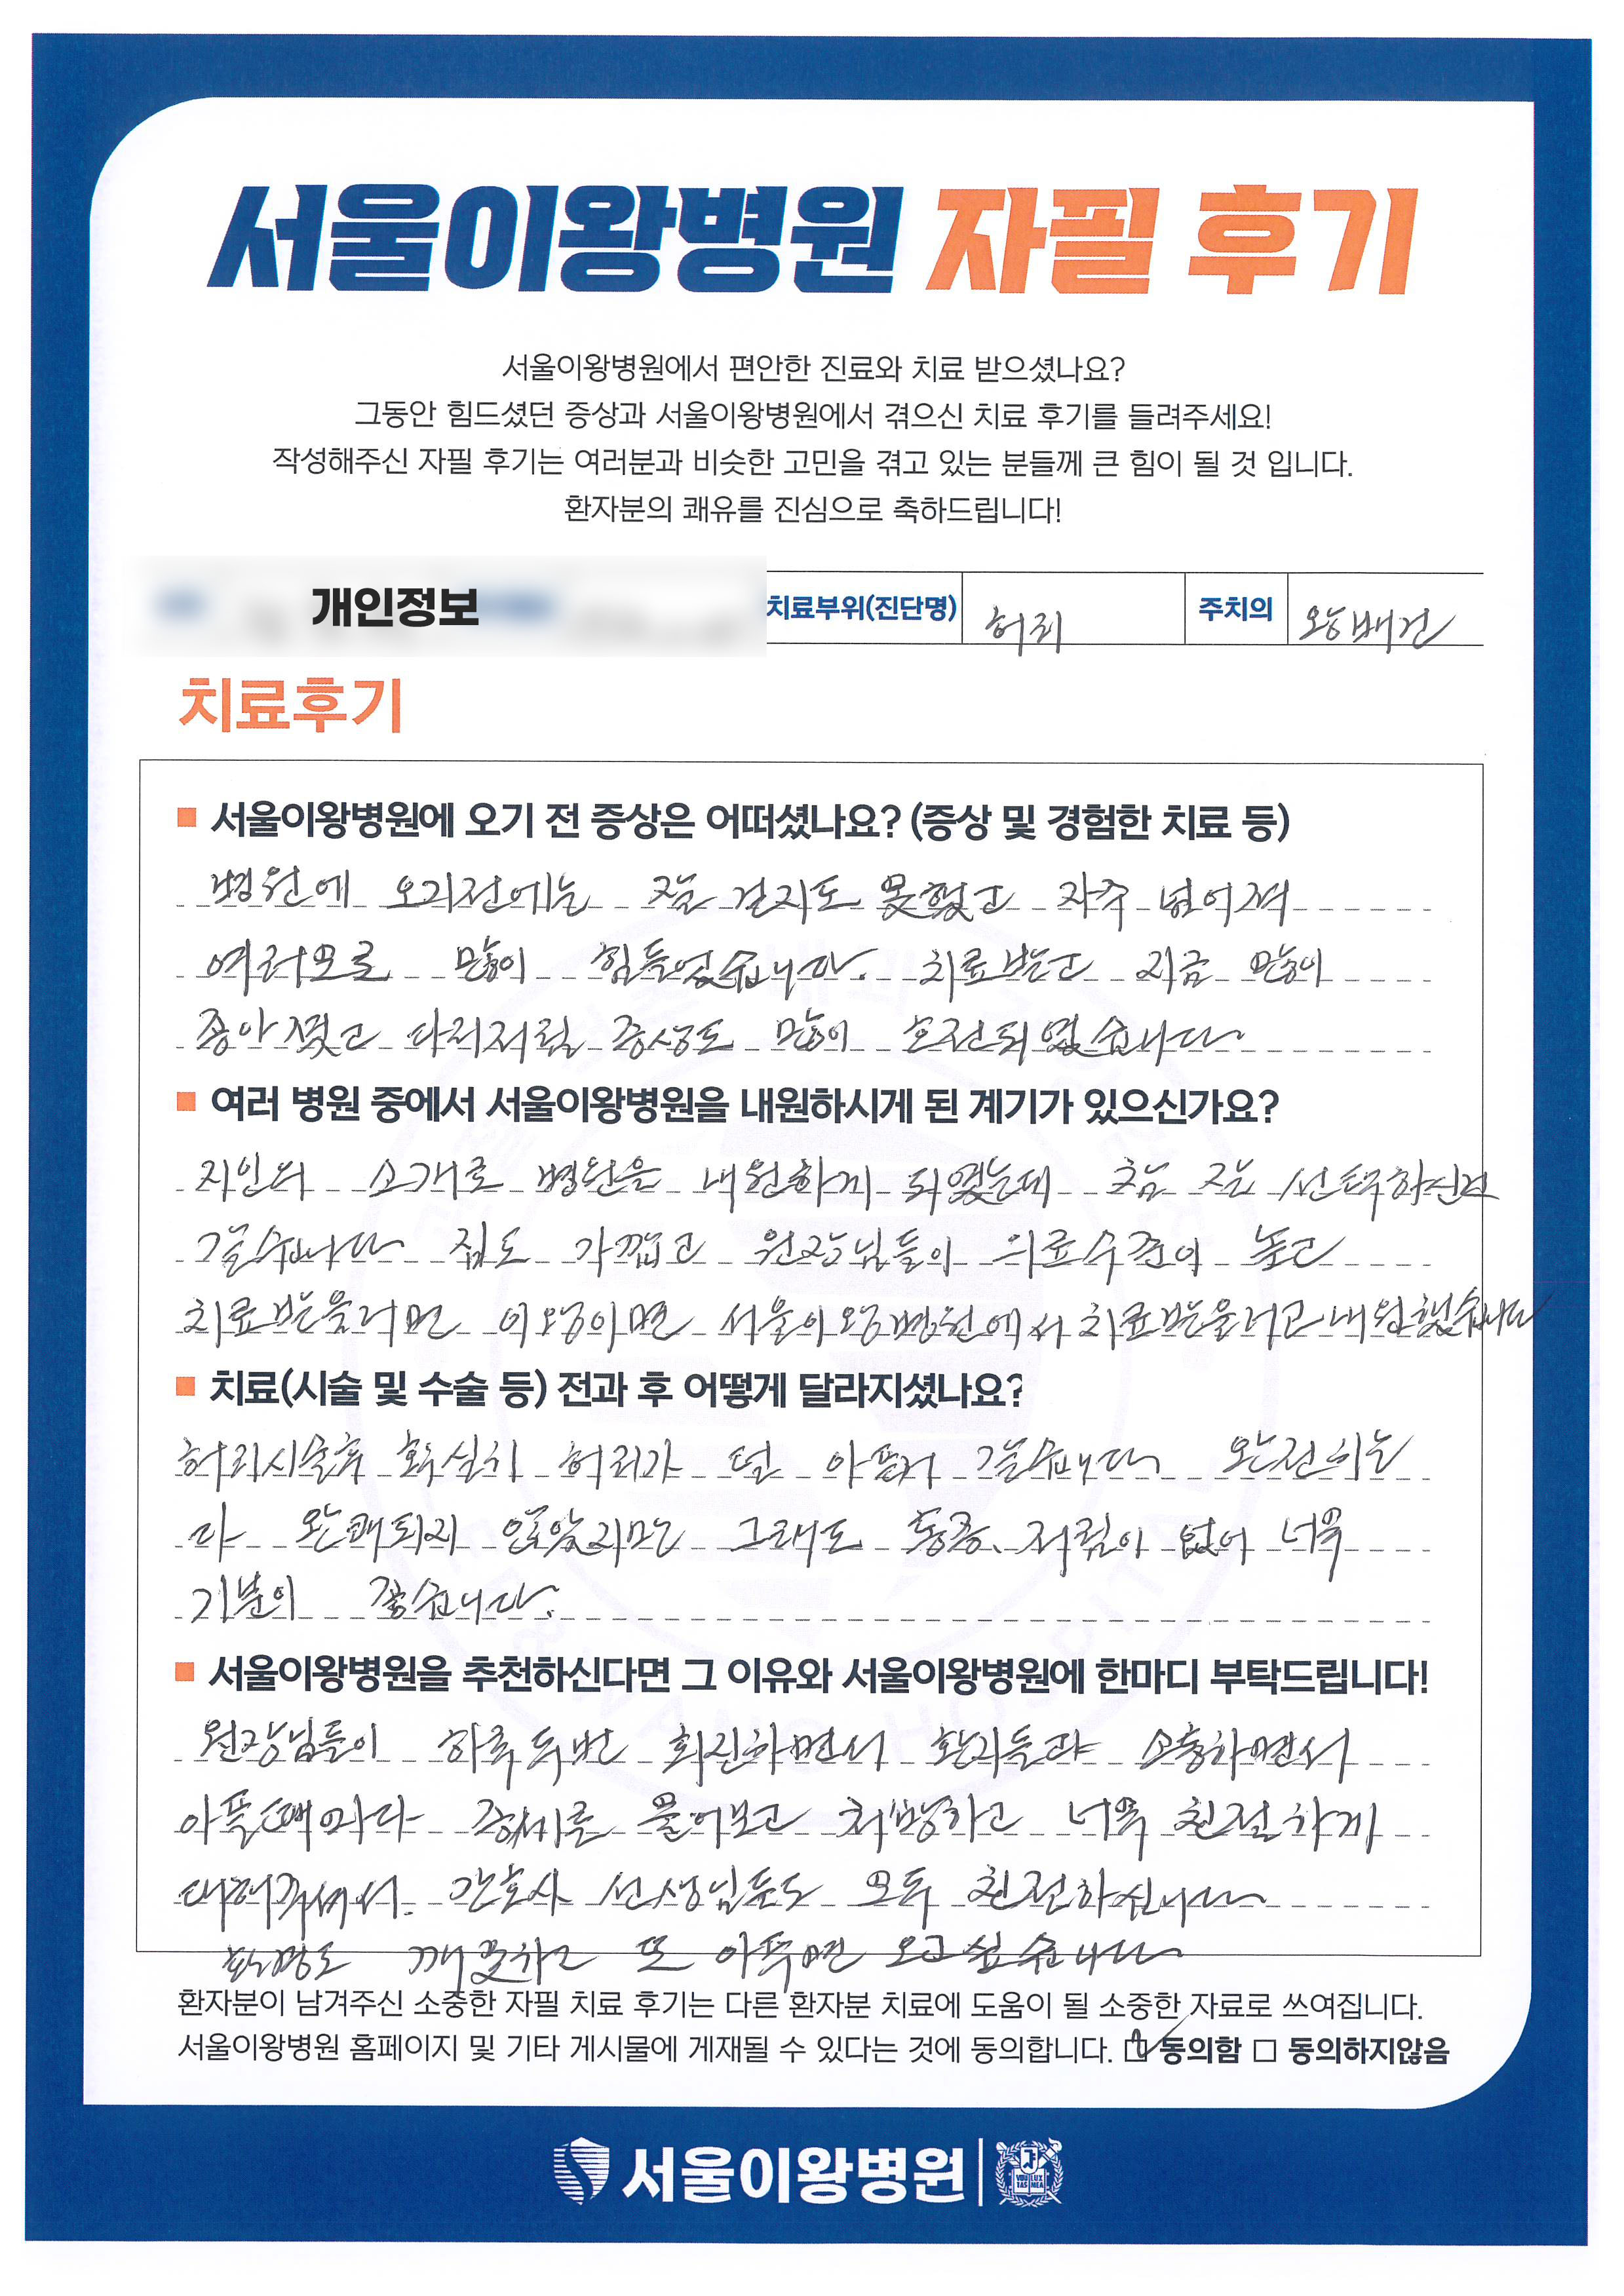 서울이왕병원 자필 후기
서울이왕병원에서 편안한 진료와 치료 받으셨나요?
그동안 힘드셨던 증상과 서울이왕병원에서 겪으신 치료 후기를 들려주세요!
작성해주신 자필 후기는 여러분과 비슷한 고민을 겪고 있는 분들께 큰 힘이 될 것 입니다.
환자분의 쾌유를 진심으로 축하드립니다!
개인정보 치료부위(진단명) 허리 주치의 왕배건
치료후기
서울이왕병원에 오기 전 증상은 어떠셨나요? (증상 및 경험한 치료 등)
병원에 오기전에는 잘 걷지도 못했고 자주 넘어져
여러모로 많이 힘들었습니다. 치료받고 지금 많이
좋아졌고 다리저림 증상도 많이 호전되었습니다
여러 병원 중에서 서울이왕병원을 내원하시게 된 계기가 있으신가요?
지인의 소개로 병원을 내원하게 되었는데 참 잘 선택하신것
같습니다 집도 가깝고 원장님들이 의료수준이 높고
치료받을려면 이왕이면 서울이왕병원에서 치료받을려고 내원했습니다
치료(시술 및 수술 등) 전과 후 어떻게 달라지셨나요?
허리시술후 확실히 허리가 덜 아픈거 같습니다 완전히는
다 완쾌되지 않았지만 그래도 통증, 저림이 없어 너무
기분이 좋습니다.
서울이왕병원을 추천하신다면 그 이유와 서울이왕병원에 한마디 부탁드립니다!
원장님들이 하루 두번 회진하면서 환자들과 소통하면서
아플때마다 증세를 물어보고 처방하고 너무 친절하게
대해주셔서. 간호사 선생님들도 모두 친절하십니다
환경도 깨끗하고 또 아프면 오고 싶습니다
환자분이 남겨주신 소중한 자필 치료 후기는 다른 환자분 치료에 도움이 될 소중한 자료로 쓰여집니다.
서울이왕병원 홈페이지 및 기타 게시물에 게재될 수 있다는 것에 동의합니다. ☑ 동의함 □ 동의하지않음
서울이왕병원